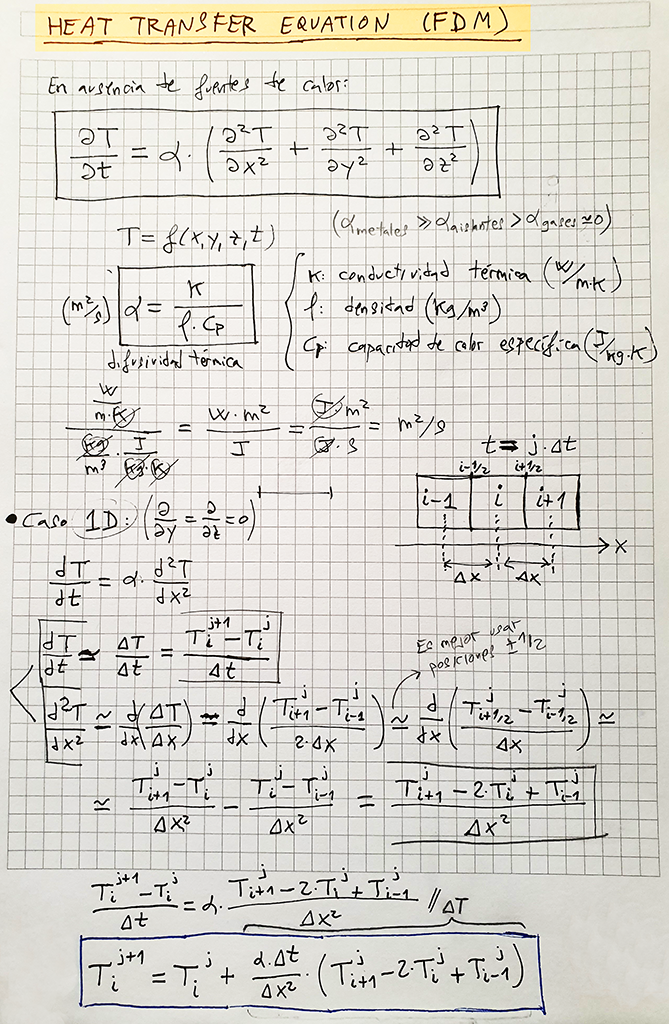 HEAT TRANSFER EQUATION (FDM)
En ausencia de fuentes de calor:
∂T/∂t = α · (∂²T/∂x² + ∂²T/∂y² + ∂²T/∂z²)
T = f(x,y,z,t)
(α metales ≫ α aislantes > α gases ≃ 0)
(m²/s) α = K / (ρ · Cp)
difusividad térmica
K: conductividad térmica (W/m·K)
ρ: densidad (Kg/m³)
Cp: capacidad de calor específica (J/kg·K)
(W/(m·K)) / ((Kg/m³) · (J/(Kg·K))) = W·m²/J = J·m²/(J·s) = m²/s
t = j·Δt
i-1/2 i+1/2
i-1 i i+1
x
Δx Δx
• Caso 1D: (∂/∂y = ∂/∂z = 0)
dT/dt = α · d²T/dx²
dT/dt ≃ ΔT/Δt = (T_i^{j+1} - T_i^j)/Δt
Es mejor usar
posiciones ±1/2
d²T/dx² ≃ d/dx (ΔT/Δx) ≃ d/dx ((T_{i+1}^j - T_{i-1}^j)/(2·Δx)) ≃ d/dx ((T_{i+1/2}^j - T_{i-1/2}^j)/Δx) ≃
≃ (T_{i+1}^j - T_i^j)/Δx² - (T_i^j - T_{i-1}^j)/Δx² = (T_{i+1}^j - 2·T_i^j + T_{i-1}^j)/Δx²
(T_i^{j+1} - T_i^j)/Δt = α · (T_{i+1}^j - 2·T_i^j + T_{i-1}^j)/Δx² // ΔT
T_i^{j+1} = T_i^j + (α·Δt/Δx²) · (T_{i+1}^j - 2·T_i^j + T_{i-1}^j)